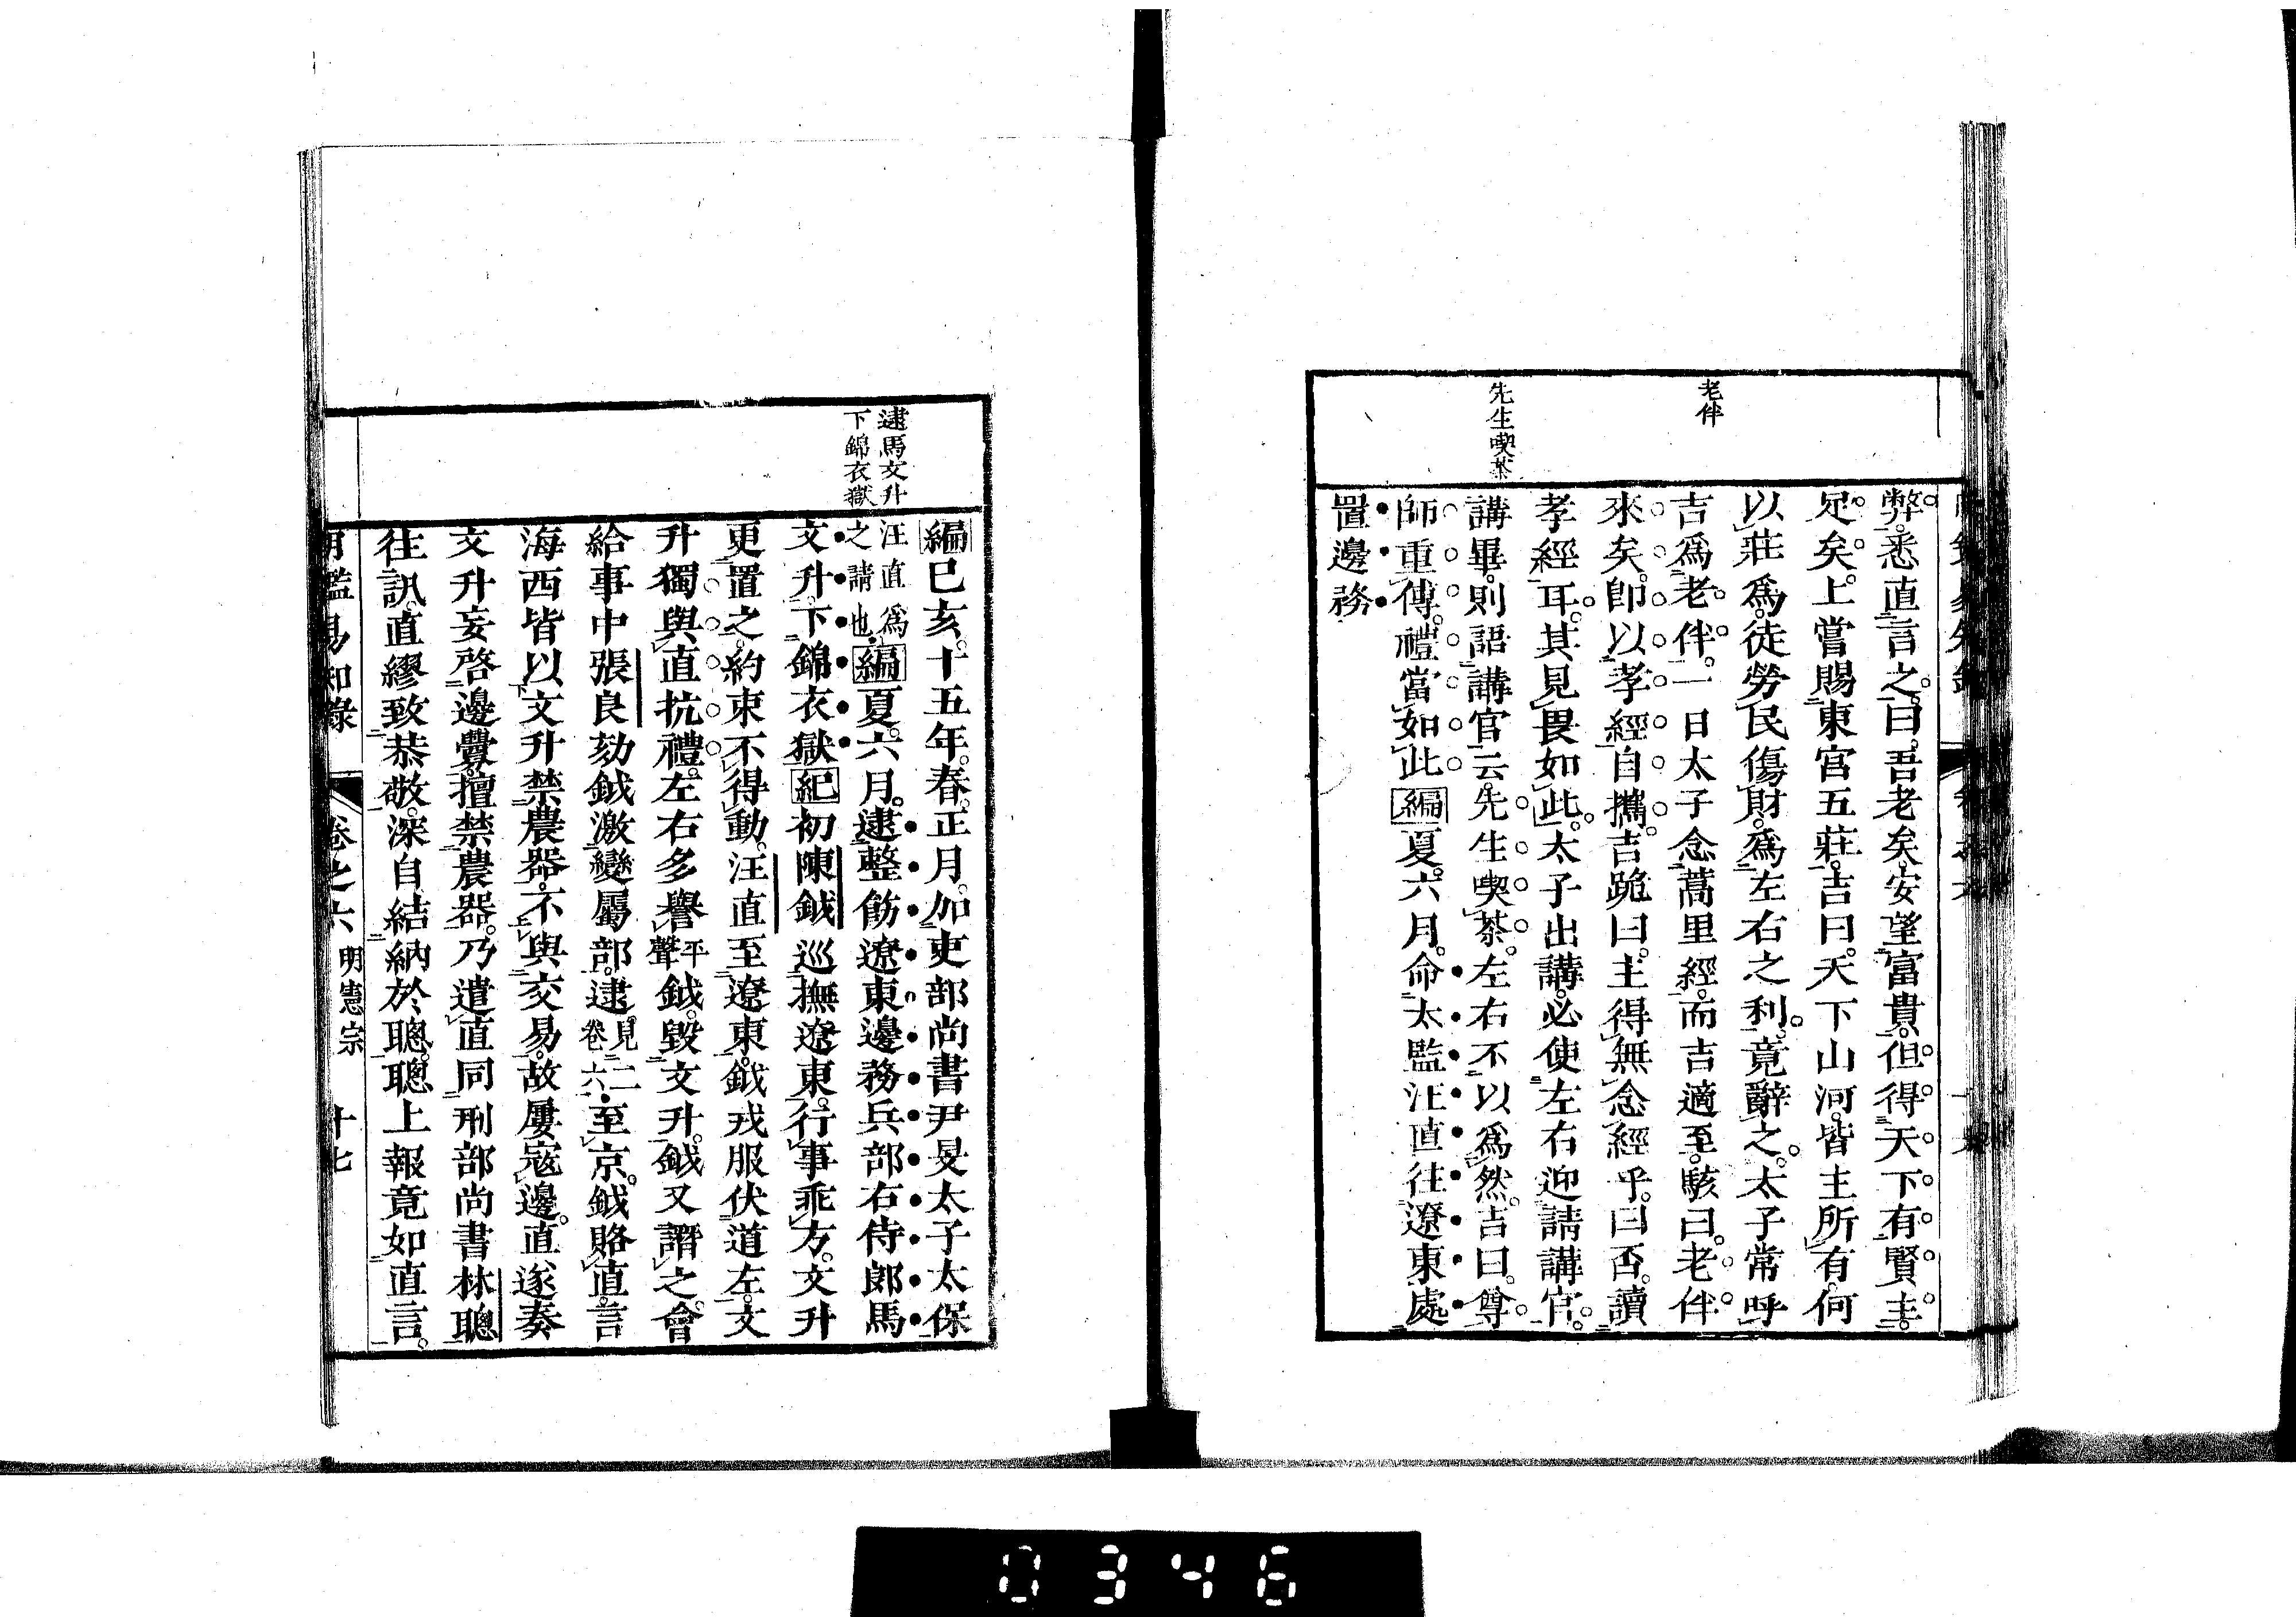 老伴
先生喫茶
弊。悉直言之。曰。吾老矣。安望富貴。但得天下有賢主。
足矣。上嘗賜東宮五莊。吉曰。天下山河。皆主所有。何
以莊爲。徒勞民傷財。爲左右之利。竟辭之。太子常呼
吉爲老伴。一日太子念蒿里經。而吉適至。駭曰。老伴
來矣。卽以孝經自攜。吉跪曰。主得無念經乎。曰。否。讀
孝經耳。其見畏如此。太子出講。必使左右迎請講官。
講畢。則語講官云。先生喫茶。左右不以爲然。吉曰。尊
師重傅。禮當如此。編夏。六月。命太監汪直往遼東處
置邊務
逮馬文升
下錦衣獄
編巳亥。十五年。春。正月。加吏部尚書尹旻太子太保
汪直爲
之請也。編夏。六月。逮整飭遼東邊務兵部右侍郎馬
文升。下錦衣獄紀初陳鉞巡撫遼東。行事乖方。文升
更置之。約束不得動。汪直至遼東。鉞戎服伏道左。文
升獨與直抗禮。左右多譽平
聲鉞。毀文升。鉞又譖之。會
給事中張良劾鉞激變屬部。逮見二
卷六。至京。鉞賂直。言
海西皆以文升禁農器。不與交易。故屢寇邊。直遂奏
文升妄啓邊釁。擅禁農器。乃遣直同刑部尚書林聰
往訊。直繆致恭敬。深自結納於聰。聰上報竟如直言。
明鑑易知錄 卷之六 明憲宗 十七